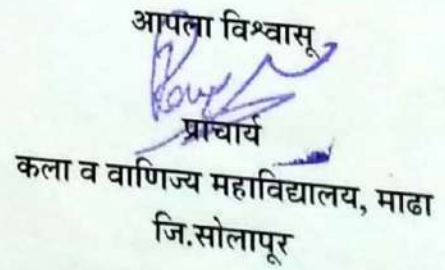 आपला विश्वासू
प्राचार्य
कला व वाणिज्य महाविद्यालय, माढा
जि.सोलापूर